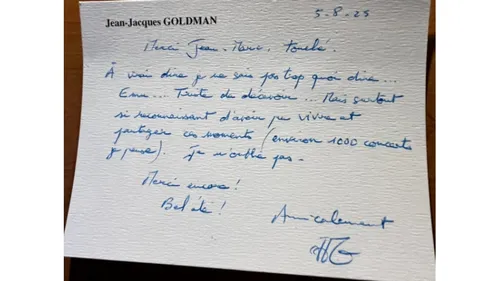 Jean-Jacques GOLDMAN
5-8-25
Merci Jean-Marc. Touché.
À vrai dire je ne sais pas trop quoi dire...
Emu... Triste de décevoir... Mais surtout
si reconnaissant d'avoir pu vivre et
partager ces moments (environ 1000 concerts
je pense). Je n'oublie pas.
Merci encore!
Bel été!
Amicalement